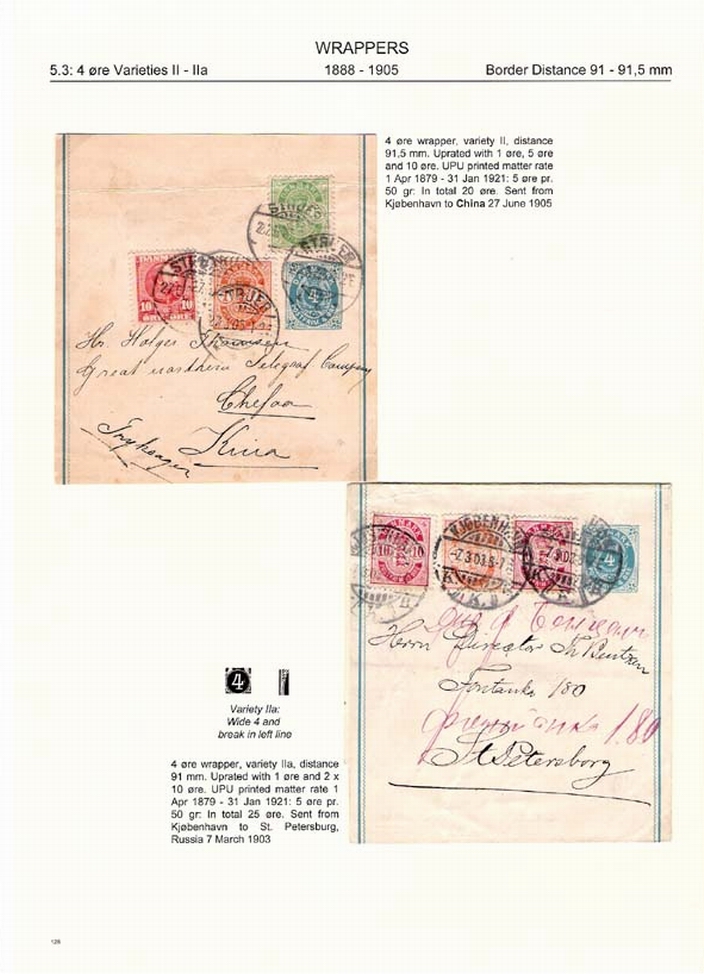 WRAPPERS
5.3: 4 øre Varieties II - IIa 1888 - 1905 Border Distance 91 - 91,5 mm
4 øre wrapper, variety II, distance
91,5 mm. Uprated with 1 øre, 5 øre
and 10 øre. UPU printed matter rate
1 Apr 1879 - 31 Jan 1921: 5 øre pr.
50 gr: In total 20 øre. Sent from
Kjøbenhavn to China 27 June 1905
10 10
Hr. Holger
Great northern Telegraf Company
Chefoo
Kina
10 10
KJØBENHAVN
-7.3.03.
K.
4
Herrn Director Th Buntzen
Fontanka 180
180
St Petersborg
4
Variety IIa:
Wide 4 and
break in left line
4 øre wrapper, variety IIa, distance
91 mm. Uprated with 1 øre and 2 x
10 øre. UPU printed matter rate 1
Apr 1879 - 31 Jan 1921: 5 øre pr.
50 gr: In total 25 øre. Sent from
Kjøbenhavn to St. Petersburg,
Russia 7 March 1903
128